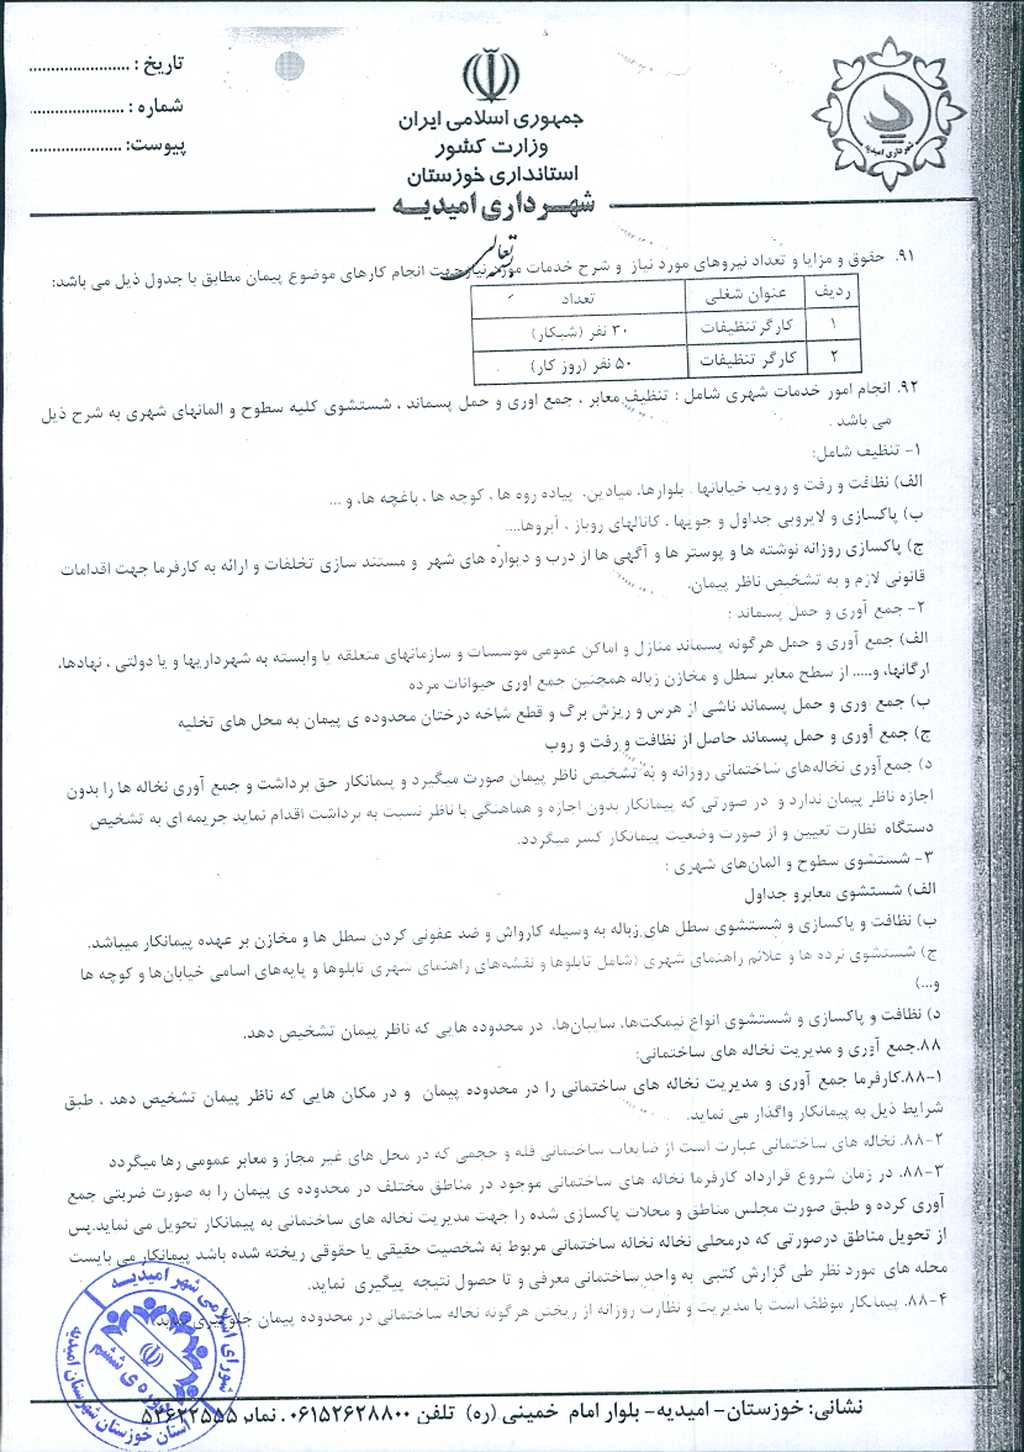 تاریخ : ........................
شماره : ......................
پیوست: ......................
جمهوری اسلامی ایران
وزارت کشور
استانداری خوزستان
شهرداری امیدیه
شهرداری امیدیه
۹۱. حقوق و مزایا و تعداد نیروهای مورد نیاز و شرح خدمات مورد نیاز جهت انجام کارهای موضوع پیمان مطابق با جدول ذیل می باشد:
ردیف عنوان شغلی تعداد
۱ کارگر تنظیفات ۳۰ نفر (شبکار)
۲ کارگر تنظیفات ۵۰ نفر (روز کار)
۹۲. انجام امور خدمات شهری شامل : تنظیف معابر ، جمع اوری و حمل پسماند ، شستشوی کلیه سطوح و المانهای شهری به شرح ذیل
می باشد .
۱- تنظیف شامل:
الف) نظافت و رفت و رویب خیابانها . بلوارها، میادین، پیاده روه ها ، کوچه ها ، باغچه ها، و ...
ب) پاکسازی و لایروبی جداول و جویها ، کانالهای روباز ، آبروها....
ج) پاکسازی روزانه نوشته ها و پوستر ها و آگهی ها از درب و دیواره های شهر و مستند سازی تخلفات و ارائه به کارفرما جهت اقدامات
قانونی لازم و به تشخیص ناظر پیمان.
۲- جمع آوری و حمل پسماند :
الف) جمع آوری و حمل هرگونه پسماند منازل و اماکن عمومی موسسات و سازمانهای متعلقه یا وابسته به شهرداریها و یا دولتی ، نهادها،
ارگانها، و..... از سطح معابر سطل و مخازن زباله همچنین جمع اوری حیوانات مرده
ب) جمع وری و حمل پسماند ناشی از هرس و ریزش برگ و قطع شاخه درختان محدوده ی پیمان به محل های تخلیه
ج) جمع آوری و حمل پسماند حاصل از نظافت و رفت و روب
د) جمع‌آوری نخاله‌های ساختمانی روزانه و به تشخیص ناظر پیمان صورت میگیرد و پیمانکار حق برداشت و جمع آوری نخاله ها را بدون
اجازه ناظر پیمان ندارد و در صورتی که پیمانکار بدون اجازه و هماهنگی با ناظر نسبت به برداشت اقدام نماید جریمه ای به تشخیص
دستگاه نظارت تعیین و از صورت وضعیت پیمانکار کسر میگردد.
۳- شستشوی سطوح و المان‌های شهری :
الف) شستشوی معابرو جداول
ب) نظافت و پاکسازی و شستشوی سطل های زباله به وسیله کارواش و ضد عفونی کردن سطل ها و مخازن بر عهده پیمانکار میباشد.
ج) شستشوی نرده ها و علائم راهنمای شهری (شامل تابلوها و نقشه‌های راهنمای شهری تابلوها و پایه‌های اسامی خیابان‌ها و کوچه ها
و...)
د) نظافت و پاکسازی و شستشوی انواع نیمکت‌ها، سایبان‌ها، در محدوده هایی که ناظر پیمان تشخیص دهد.
۸۸.جمع آوری و مدیریت نخاله های ساختمانی:
۸۸-۱.کارفرما جمع آوری و مدیریت نخاله های ساختمانی را در محدوده پیمان و در مکان هایی که ناظر پیمان تشخیص دهد ، طبق
شرایط ذیل به پیمانکار واگذار می نماید.
۸۸-۲. نخاله های ساختمانی عبارت است از ضایعات ساختمانی فله و حجمی که در محل های غیر مجاز و معابر عمومی رها میگردد
۸۸-۳. در زمان شروع قرارداد کارفرما نخاله های ساختمانی موجود در مناطق مختلف در محدوده ی پیمان را به صورت ضربتی جمع
آوری کرده و طبق صورت مجلس مناطق و محلات پاکسازی شده را جهت مدیریت نخاله های ساختمانی به پیمانکار تحویل می نماید.پس
از تحویل مناطق درصورتی که درمحلی نخاله نخاله ساختمانی مربوط به شخصیت حقیقی یا حقوقی ریخته شده باشد پیمانکار می بایست
محله های مورد نظر طی گزارش کتبی به واحد ساختمانی معرفی و تا حصول نتیجه پیگیری نماید.
۸۸-۴. پیمانکار موظف است با مدیریت و نظارت روزانه از ریختن هرگونه نخاله ساختمانی در محدوده پیمان جلوگیری نماید.
شورای اسلامی شهر امیدیه
دوره ی ششم
استان خوزستان شهرستان امیدیه
نشانی: خوزستان- امیدیه- بلوار امام خمینی (ره) تلفن ۰۶۱۵۲۶۲۸۸۰۰ نمابر ۵۲۶۲۲۵۵۵